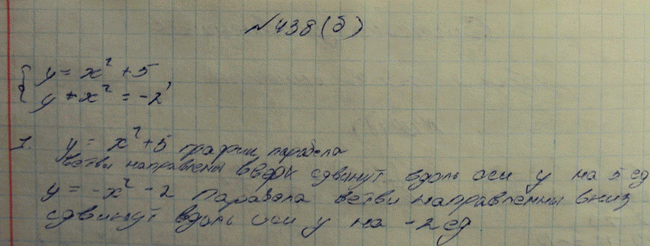 №438(б)
y = x² + 5
y + x² = -2
1. y = x² + 5 график парабола
ветви направлены вверх сдвинут вдоль оси y на 5 ед
y = -x² - 2 Парабола ветви направленны вниз
сдвинут вдоль оси y на -2 ед.